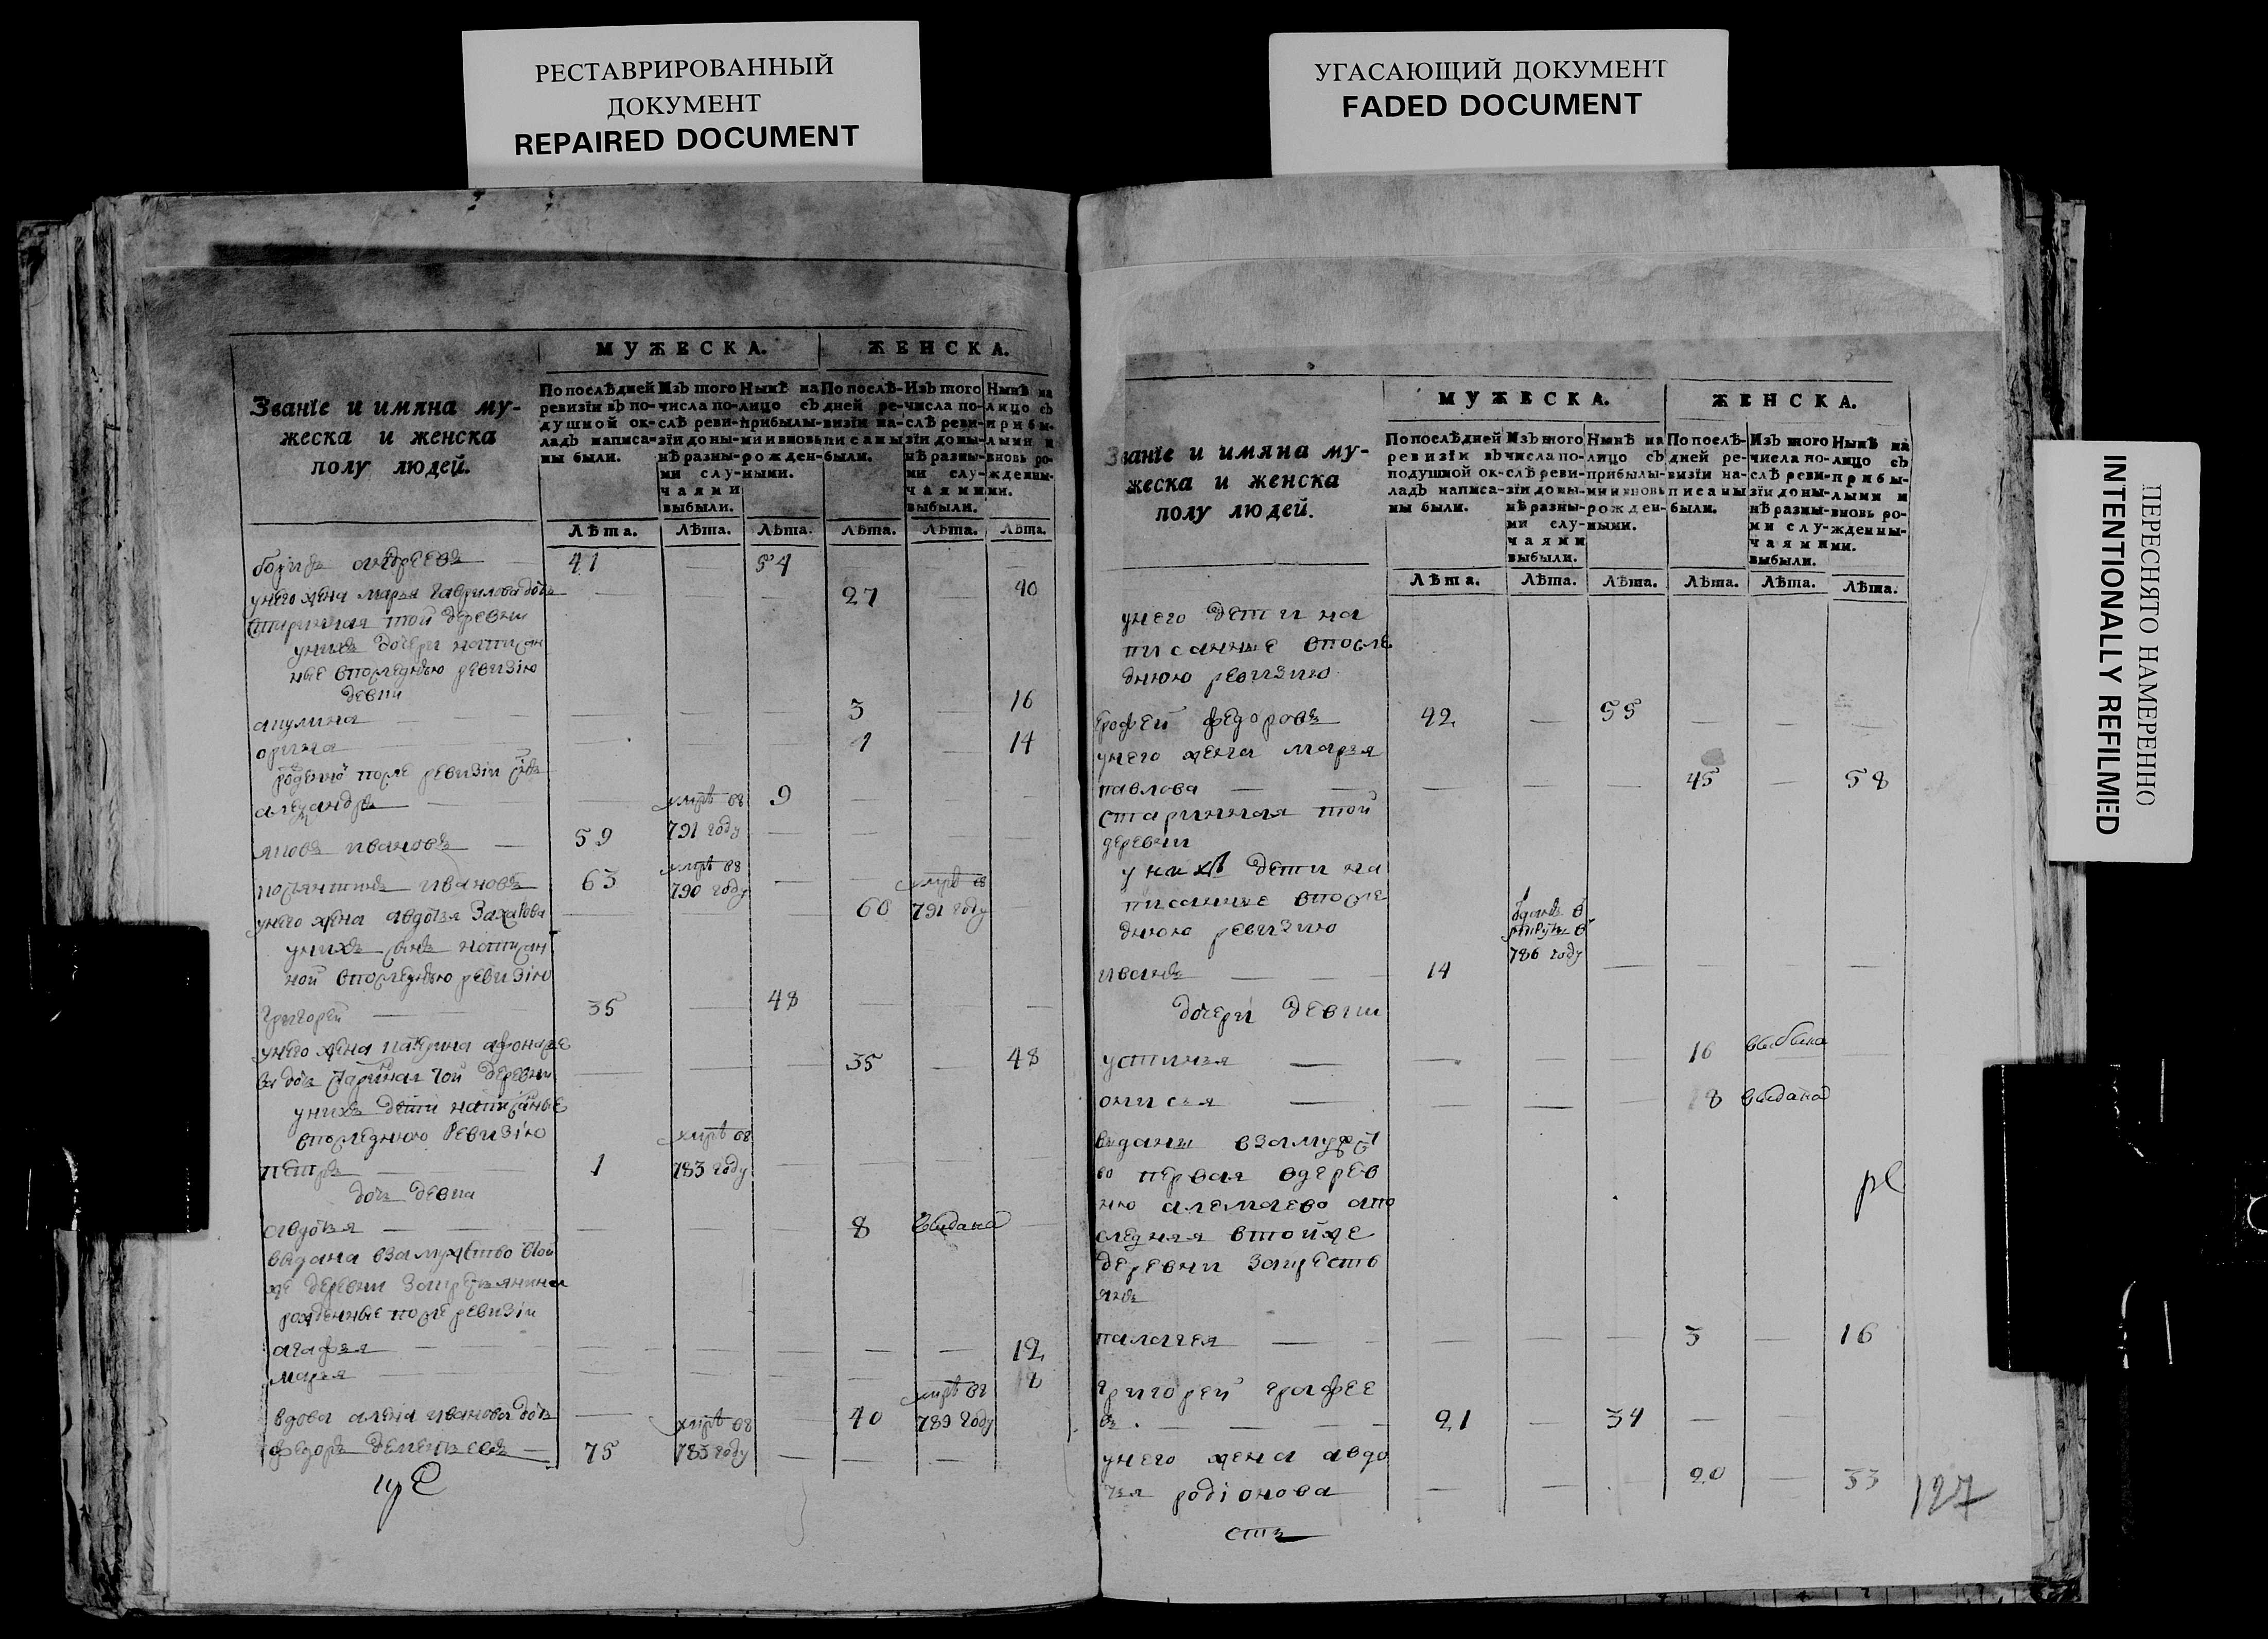 РЕСТАВРИРОВАННЫЙ
ДОКУМЕНТ
REPAIRED DOCUMENT
УГАСАЮЩИЙ ДОКУМЕНТ
FADED DOCUMENT
ПЕРЕСНЯТО НАМЕРЕННО
INTENTIONALLY REFILMED
МУЖЕСКА. ЖЕНСКА.
Званїе и имяна му-
жеска и женска
полу людей.
По послѣдней ревизїи въ по-
душной ок-
ладъ написа-
ны были.
Изъ того
числа по-
слѣ реви-
зїи доны-
нѣ разны-
ми слу-
чаями
выбыли.
Нынѣ на
лицо съ
прибылы-
ми и вновь
рожден-
ными.
По послѣ-
дней ре-
визїи на-
писаны
были.
Изъ того
числа по-
слѣ реви-
зїи доны-
нѣ разны-
ми слу-
чаями
выбыли.
Нынѣ на
лицо съ
прибы-
лыми и
вновь ро-
жденны-
ми.
Лѣта. Лѣта. Лѣта. Лѣта. Лѣта. Лѣта.
андреевъ 41 — 54
унего жена марья гаврилова дочь 27 40
старинная той деревни
унихъ дочери написан
ные впоследнюю ревизїю
девки
акулина 3 16
орина 1 — 14
рожденной после ревизїи сынъ
александръ 9
яковъ ивановъ 59 умре въ 791 году
ивановъ 63 умре въ 790 году
унего жена авдотья захарова 60 умре въ 791 году
унихъ сынъ написан
ной впоследнюю ревизїю
григорей 35 — 48
унего жена катерина афонасье
ва дочь старинная той деревни 35 — 48
унихъ дети написанные
впоследнюю ревизїю
петръ 1 умре въ 783 году
дочь девка
авдотья 8 выдана
выдана взамужство втой
же деревни закрестьянина
рожденные после ревизїи
агафья 12
марья 8
вдова алена иванова дочь 40 умре въ 789 году
федоръ дементьевъ 75 умре въ 783 году
МУЖЕСКА. ЖЕНСКА.
Званїе и имяна му-
жеска и женска
полу людей.
По послѣдней
ревизїи въ
подушной ок-
ладъ написа-
ны были.
Изъ того
числа по-
слѣ реви-
зїи доны-
нѣ разны-
ми слу-
чаями
выбыли.
Нынѣ на
лицо съ
прибылы-
ми и вновь
рожден-
ными.
По послѣ-
дней ре-
визїи на-
писаны
были.
Изъ того
числа по-
слѣ реви-
зїи доны-
нѣ разны-
ми слу-
чаями
выбыли.
Нынѣ на
лицо съ
прибы-
лыми и
вновь ро-
жденны-
ми.
Лѣта. Лѣта. Лѣта. Лѣта. Лѣта. Лѣта.
унего дети на
писанные впосле
днюю ревизию
ерофей федоровъ 42 — 55
унего жена марья
павлова 45 — 58
старинная той
деревни
унихъ дети на
писанные впосле
днюю ревизию
иванъ 14 отданъ в рекруты в 786 году
дочери девки
устинья 16 выбыла
онисья 8 выдана
выданы взамужст
во первая вдерев
ню алемаево апо
следняя втойже
деревни закресть
янъ
палагея 3 — 16
григорей ерофее
въ 21 — 34
унего жена авдо
тья родіонова 20 — 33
127